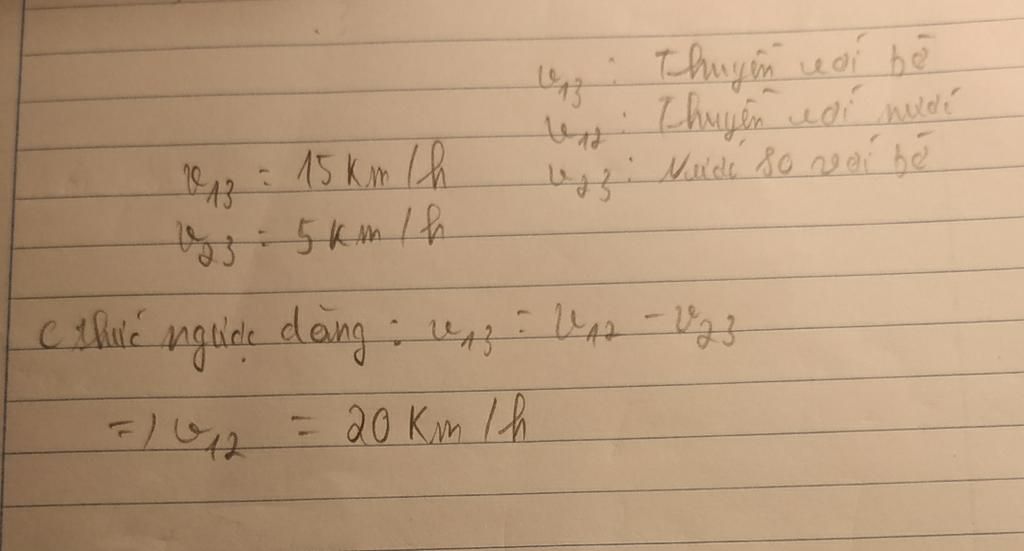 v₁₃ : Thuyền với bờ
v₁₂ : Thuyền với nước
v₂₃ : Nước so với bờ
v₁₃ = 15 Km/h
v₂₃ = 5 Km/h
C thức ngược dòng : v₁₃ = v₁₂ - v₂₃
=) v₁₂ = 20 Km/h